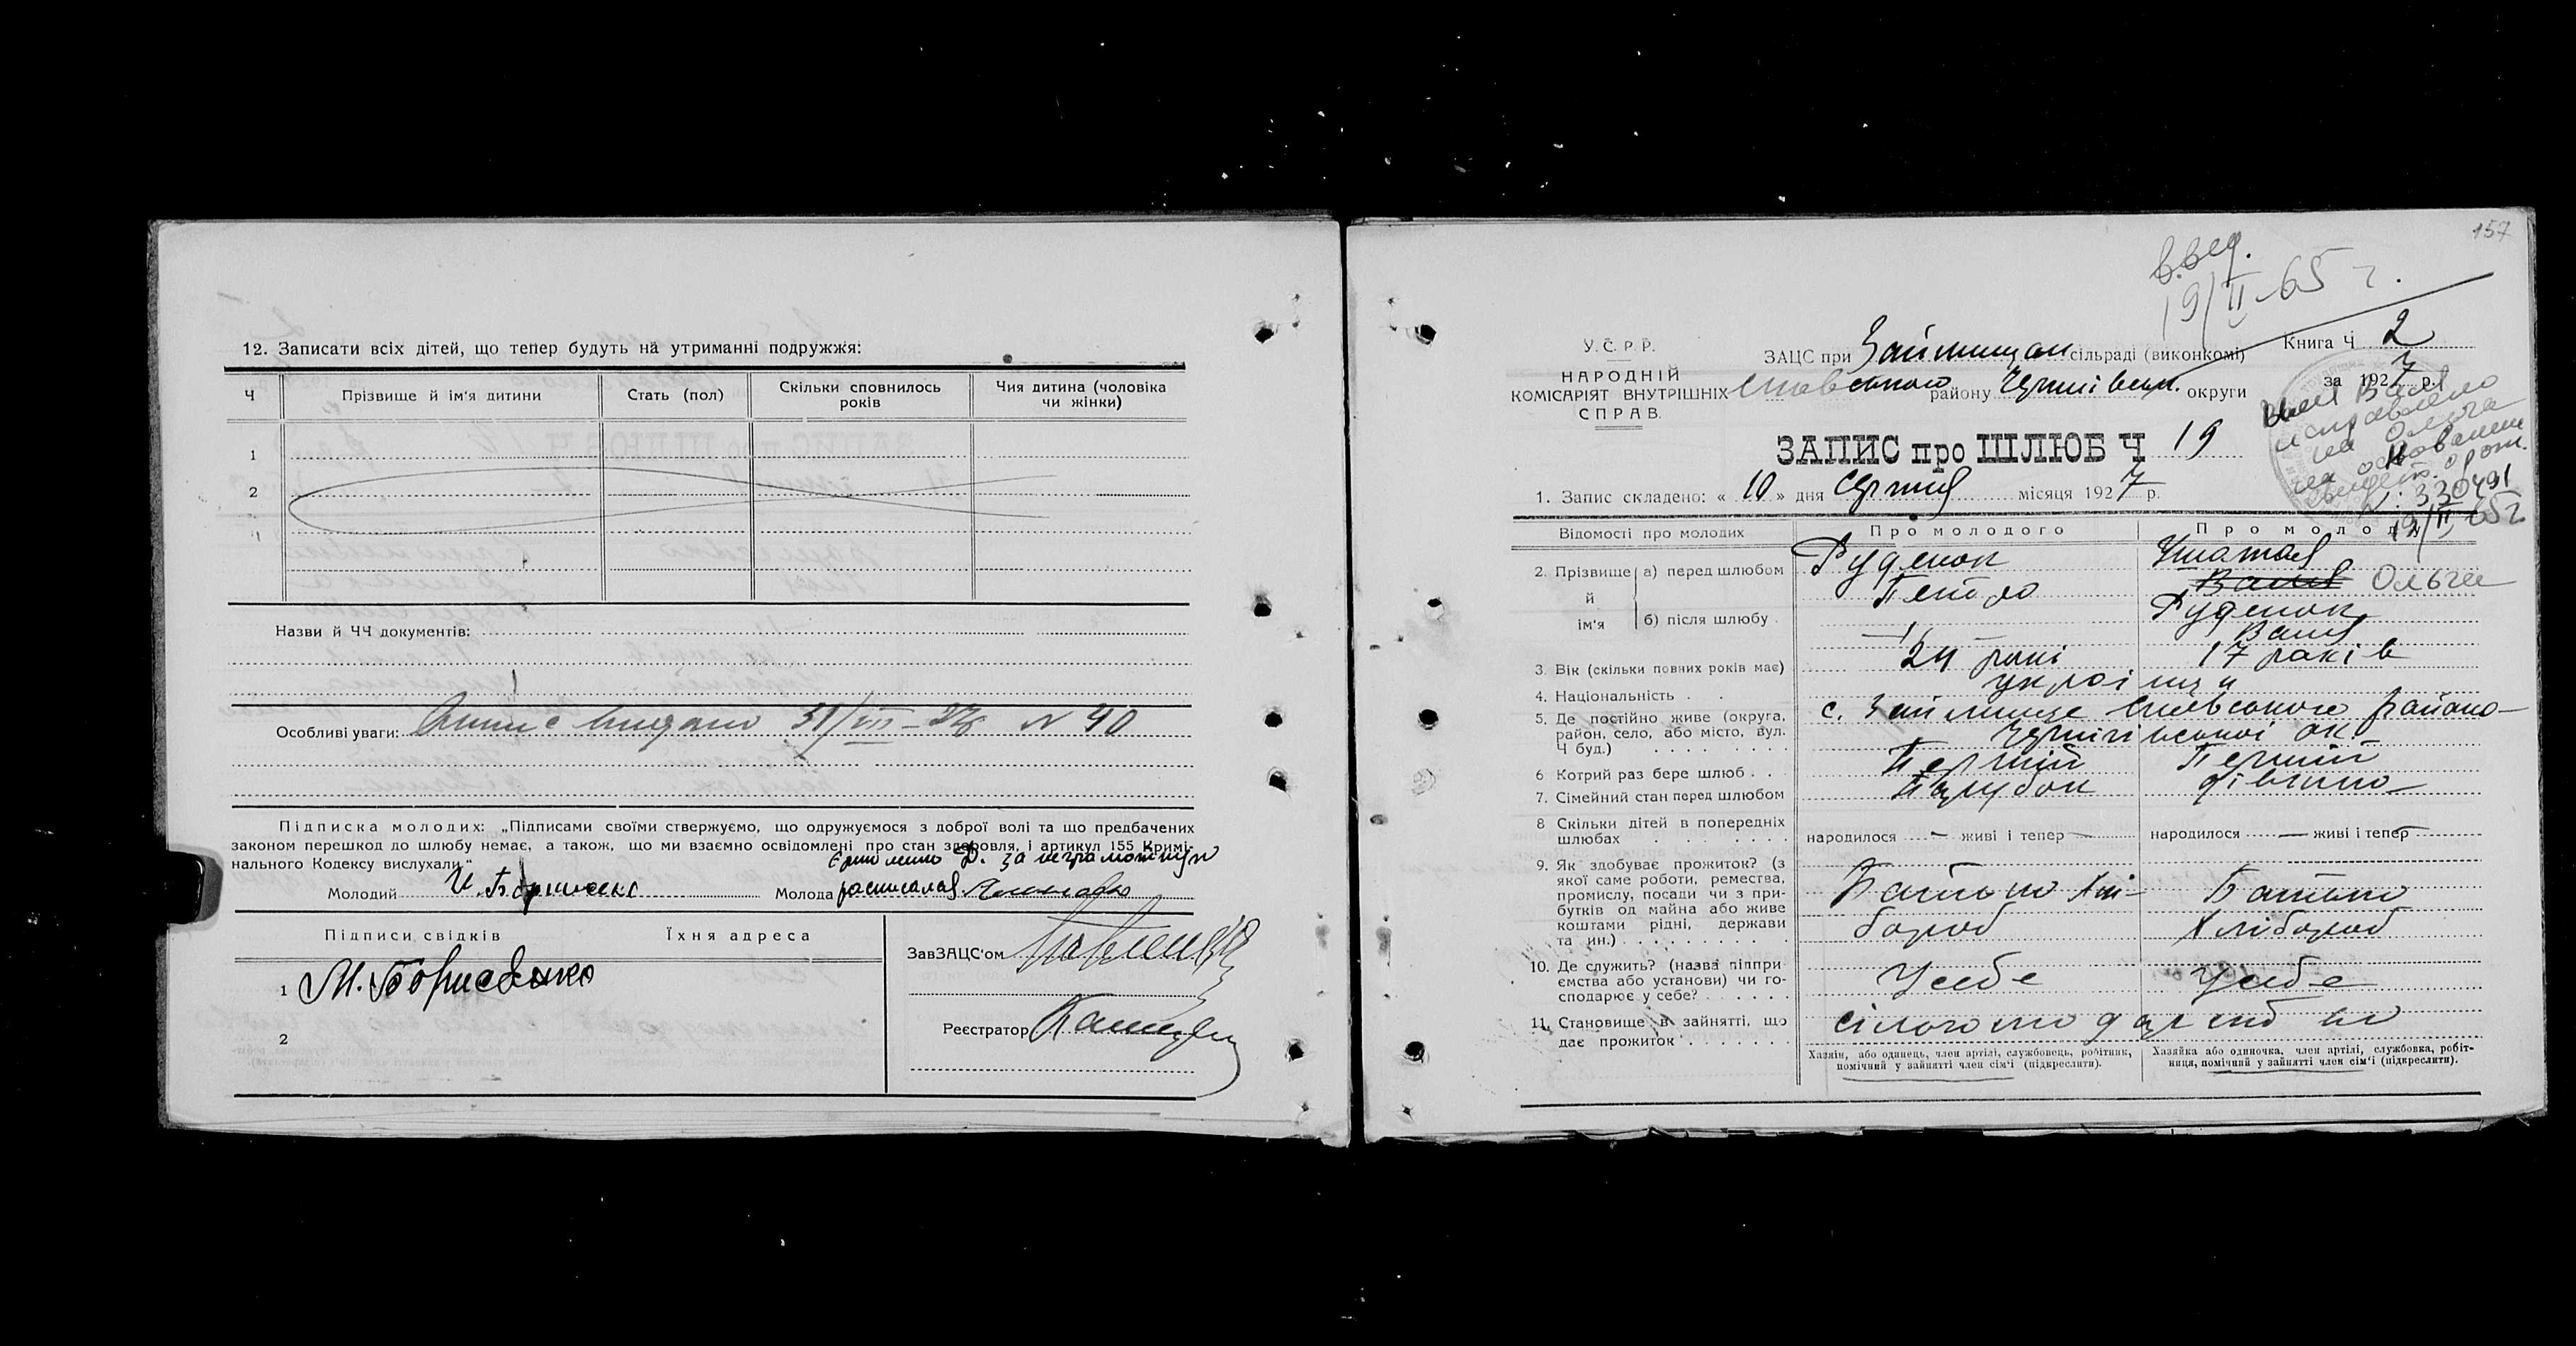 12. Записати всіх дітей, що тепер будуть на утриманні подружжя:
Ч
Прізвище й ім'я дитини
Стать (пол)
Скільки сповнилось
років
Чия дитина (чоловіка
чи жінки)
1
2
Назви й ЧЧ документів:
Особливі уваги: видано 31/VIII- N 40
Підписка молодих: „Підписами своїми стверджуємо, що одружуємося з доброї волі та що предбачених
законом перешкод до шлюбу немає, а також, що ми взаємно освідомлені про стан здоровля, і артикул 155 Кримі-
нального Кодексу вислухали."
Д. за неграмотную
Молодий
Молода
Підписи свідків
Їхня адреса
1 М. Борисенко
2
ЗавЗАЦС'ом
Реєстратор
157
19/II-65 г.
У. С. Р. Р.
НАРОДНІЙ
КОМІСАРІЯТ ВНУТРІШНІХ
СПРАВ.
ЗАЦС при Займищан сільраді (виконкомі)
району Чернігівськ. округи
Книга Ч 2
за 1927 р.
исправлено
на Ольга
на основании
330491
19/II 65 г
ЗАПИС про ШЛЮБ Ч 19
1. Запис складено: « 10 » дня серпня місяця 1927 р.
Відомості про молодих
Про молодого
Про молоду
2. Прізвище
й
ім'я
а) перед шлюбом
Руденок
Петро
Ольга
б) після шлюбу
Руденок
3. Вік (скільки повних років має)
24 роки
17 років
4. Національність . .
українци
5. Де постійно живе (округа,
район, село, або місто, вул.
Ч буд.)
с. Займище району
Чернігівської ок.
6 Котрий раз бере шлюб . .
Перший
Перший
7. Сімейний стан перед шлюбом
Парубок
дівчина
8 Скільки дітей в попередніх
шлюбах
народилося — живі і тепер —
народилося — живі і тепер —
9. Як здобуває прожиток? (з
якої саме роботи, ремества,
промислу, посади чи з при-
бутків од майна або живе
коштами рідні, держави
та ин.)
Батько хлі-
бороб
Батько
хлібороб
10. Де служить? (назва підпри-
ємства або установи) чи го-
сподарює у себе?
У себе
У себе
11. Становище в зайнятті, що
дає прожиток
Хазяїн, або одинець, член артілі, службовець, робітник,
помічний у зайнятті член сім'ї (підкреслити).
Хазяйка або одиночка, член артілі, службовка, робіт-
ниця, помічний у зайнятті член сім'ї (підкреслити).